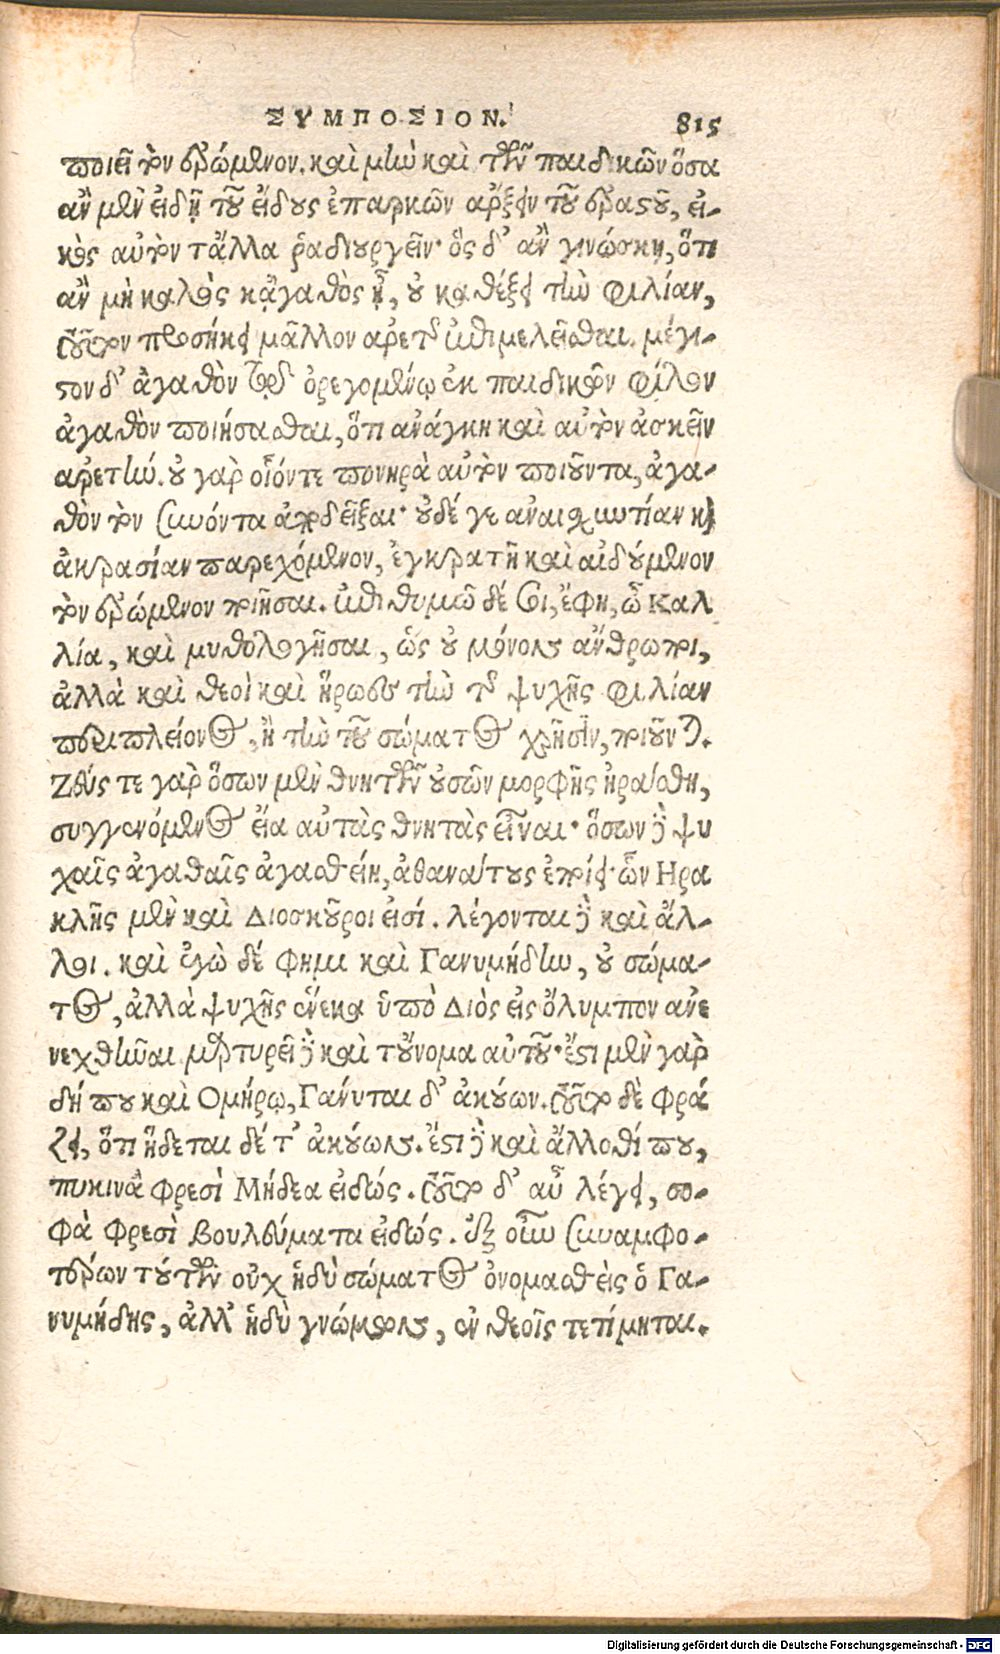 ΣΥΜΠΟΣΙΟΝ. 815
ποιεῖ τὸν ἐρώμενον. καὶ μὴν καὶ τῶν παιδικῶν ὅσα
ἂν μὲν εἰδῇ τοῦ εἴδους ἐπαρκῶν ἄρξειν τοῦ ἐραστοῦ, εἰ-
κὸς αὐτὸν τἄλλα ῥᾳδιουργεῖν· ὃς δ' ἂν γινώσκῃ, ὅτι
ἂν μὴ καλὸς κᾀγαθὸς ᾖ, οὐ καθέξει τὴν φιλίαν,
τοῦτον προσήκει μᾶλλον ἀρετῆς ἐπιμελεῖσθαι. μέγι-
στον δ' ἀγαθὸν τῷ ὀρεγομένῳ ἐκ παιδικῶν φίλον
ἀγαθὸν ποιήσασθαι, ὅτι ἀνάγκη καὶ αὐτὸν ἀσκεῖν
ἀρετήν. οὐ γὰρ οἷόντε πονηρὰ αὐτὸν ποιοῦντα, ἀγα-
θὸν τὸν συνόντα ἀποδεῖξαι· οὐδέ γε ἀναισχυντίαν καὶ
ἀκρασίαν παρεχόμενον, ἐγκρατῆ καὶ αἰδούμενον
τὸν ἐρώμενον ποιῆσαι. ἐπιθυμῶ δέ σοι, ἔφη, ὦ Καλ
λία, καὶ μυθολογῆσαι, ὡς οὐ μόνον ἄνθρωποι,
ἀλλὰ καὶ θεοὶ καὶ ἥρωες τὴν τῆς ψυχῆς φιλίαν
περὶ πλείονος, ἢ τὴν τοῦ σώματος χρῆσιν, ποιοῦνται.
Ζεύς τε γὰρ ὅσων μὲν θνητῶν οὐσῶν μορφῆς ἠράσθη,
συγγενόμενος εἴα αὐτὰς θνητὰς εἶναι· ὅσων δὲ ψυ
χαῖς ἀγαθαῖς ἀγασθείη, ἀθανάτους ἐποίει· ὧν Ηρα
κλῆς μὲν καὶ Διοσκοῦροι εἰσί. λέγονται δὲ καὶ ἄλ-
λοι. καὶ ἐγὼ δέ φημι καὶ Γανυμήδην, οὐ σώμα-
τος, ἀλλὰ ψυχῆς ἕνεκα ὑπὸ Διὸς εἰς ὄλυμπον ἀνε
νεχθῆναι μαρτυρεῖ δὲ καὶ τοὔνομα αὐτοῦ· ἔστι μὲν γὰρ
δή που καὶ Ομήρῳ, Γάνυται δ' ἀκούων. τοῦτο δὲ φρά
ζει, ὅτι ἥδεται δέ τ' ἀκούων. ἔστι δὲ καὶ ἄλλοθί που,
πυκινὰ φρεσὶ Μήδεα εἰδώς. τοῦτο δ' αὖ λέγει, σο-
φὰ φρεσὶ βουλεύματα εἰδώς. ἐξ οὖν συναμφο-
τέρων τούτων οὐχ ἡδὺ σώματος ὀνομασθεὶς ὁ Γα-
νυμήδης, ἀλλ' ἡδὺ γνώμων, ἐν θεοῖς τετίμηται.
Digitalisierung gefördert durch die Deutsche Forschungsgemeinschaft - DFG